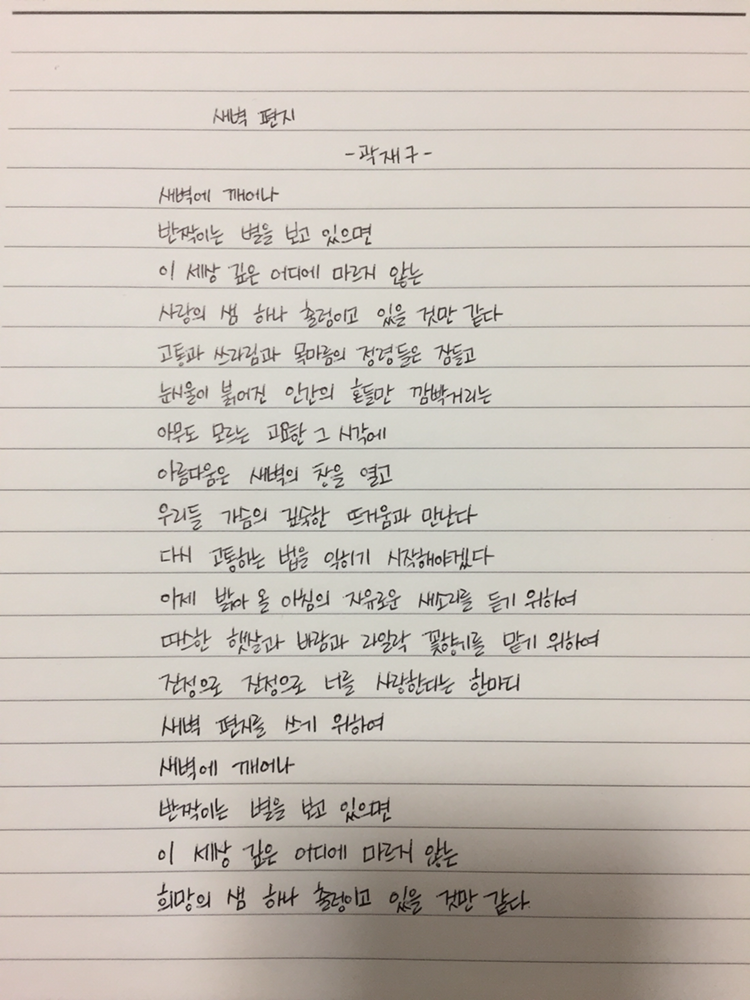 새벽 편지
-곽재구-
새벽에 깨어나
반짝이는 별을 보고 있으면
이 세상 깊은 어디에 마르지 않는
사랑의 샘 하나 출렁이고 있을 것만 같다
고통과 쓰라림과 목마름의 정령들은 잠들고
눈시울이 붉어진 인간의 혼들만 깜빡거리는
아무도 모르는 고요한 그 시각에
아름다움은 새벽의 창을 열고
우리들 가슴의 깊숙한 뜨거움과 만난다
다시 고통하는 법을 익히기 시작해야겠다
이제 밝아 올 아침의 자유로운 새소리를 듣기 위하여
따스한 햇살과 바람과 라일락 꽃향기를 맡기 위하여
진정으로 진정으로 너를 사랑한다는 한마디
새벽 편지를 쓰기 위하여
새벽에 깨어나
반짝이는 별을 보고 있으면
이 세상 깊은 어디에 마르지 않는
희망의 샘 하나 출렁이고 있을 것만 같다